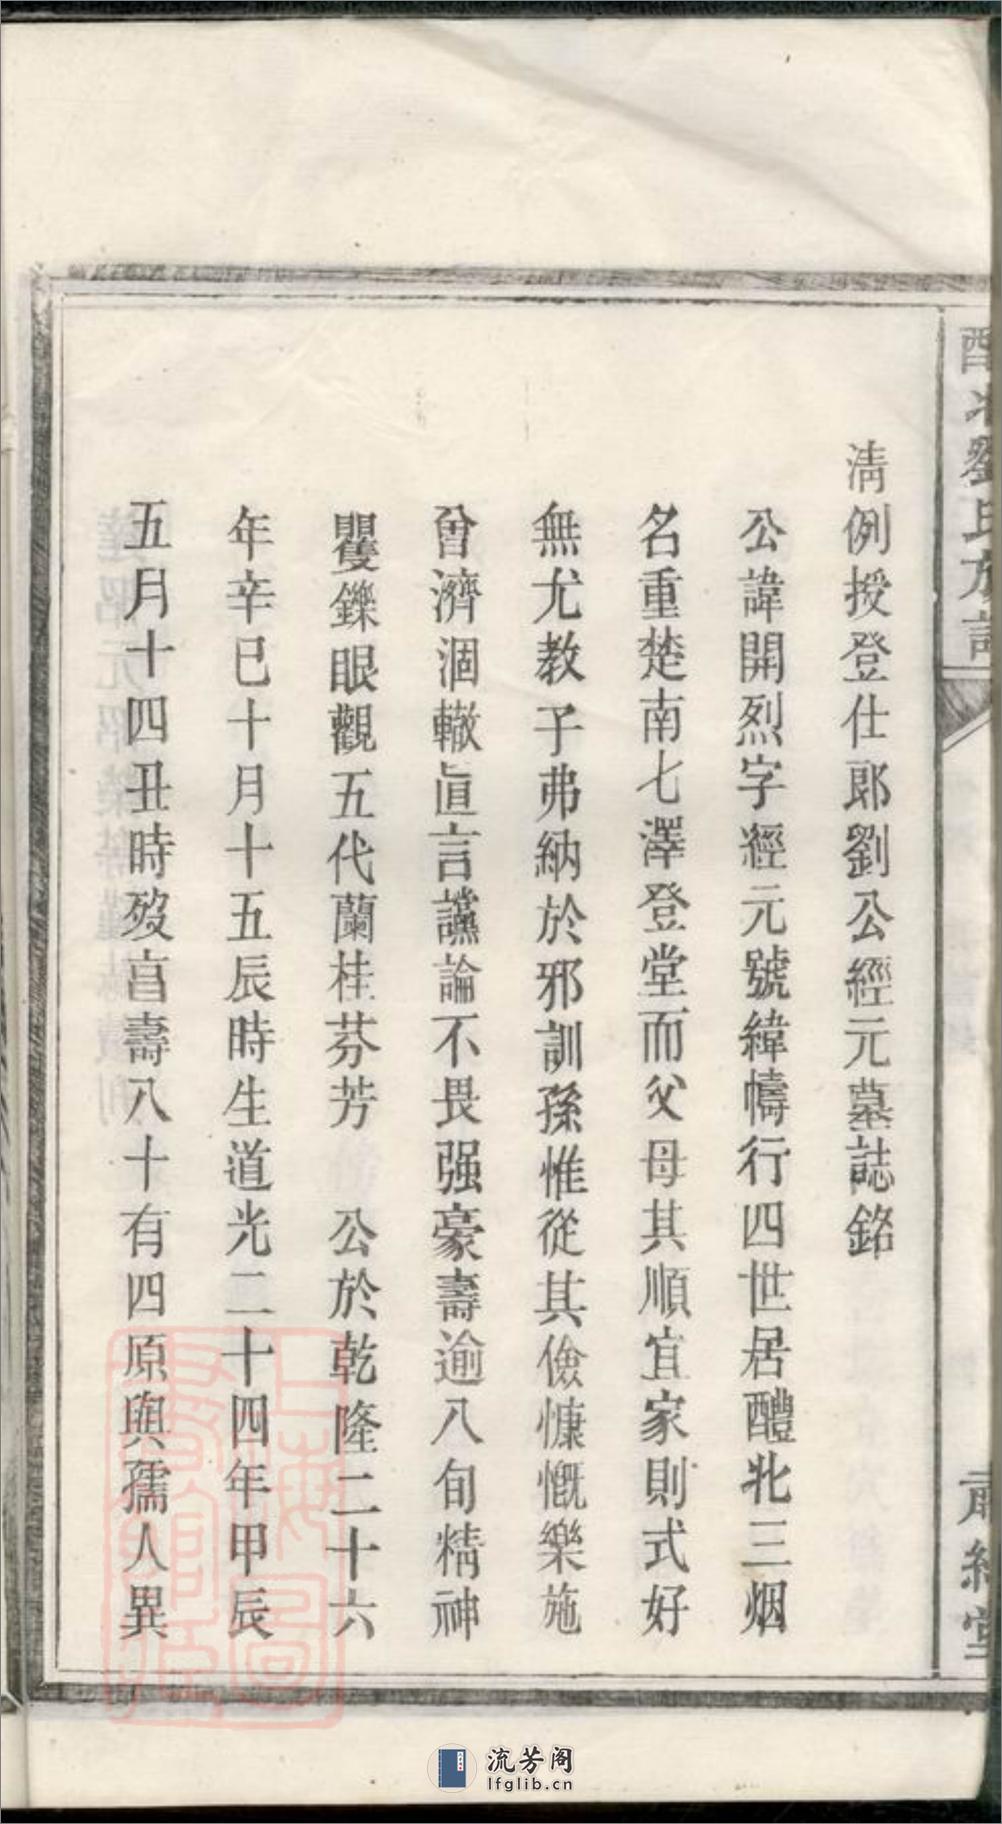 清例授登仕郎劉公經元墓誌銘
公諱開烈字經元號緯幬行四世居醴北三烟
名重楚南七澤登堂而父母其順宜家則式好
無尤教子弗納於邪訓孫惟從其儉慷慨樂施
曾濟涸轍直言讜論不畏强豪壽逾八旬精神
矍鑠眼觀五代蘭桂芬芳　公於乾隆二十六
年辛巳十月十五辰時生道光二十四年甲辰
五月十四丑時歿亯壽八十有四原與孺人異
劉氏族譜
上海圖書館藏
流芳阁
lfglib.cn